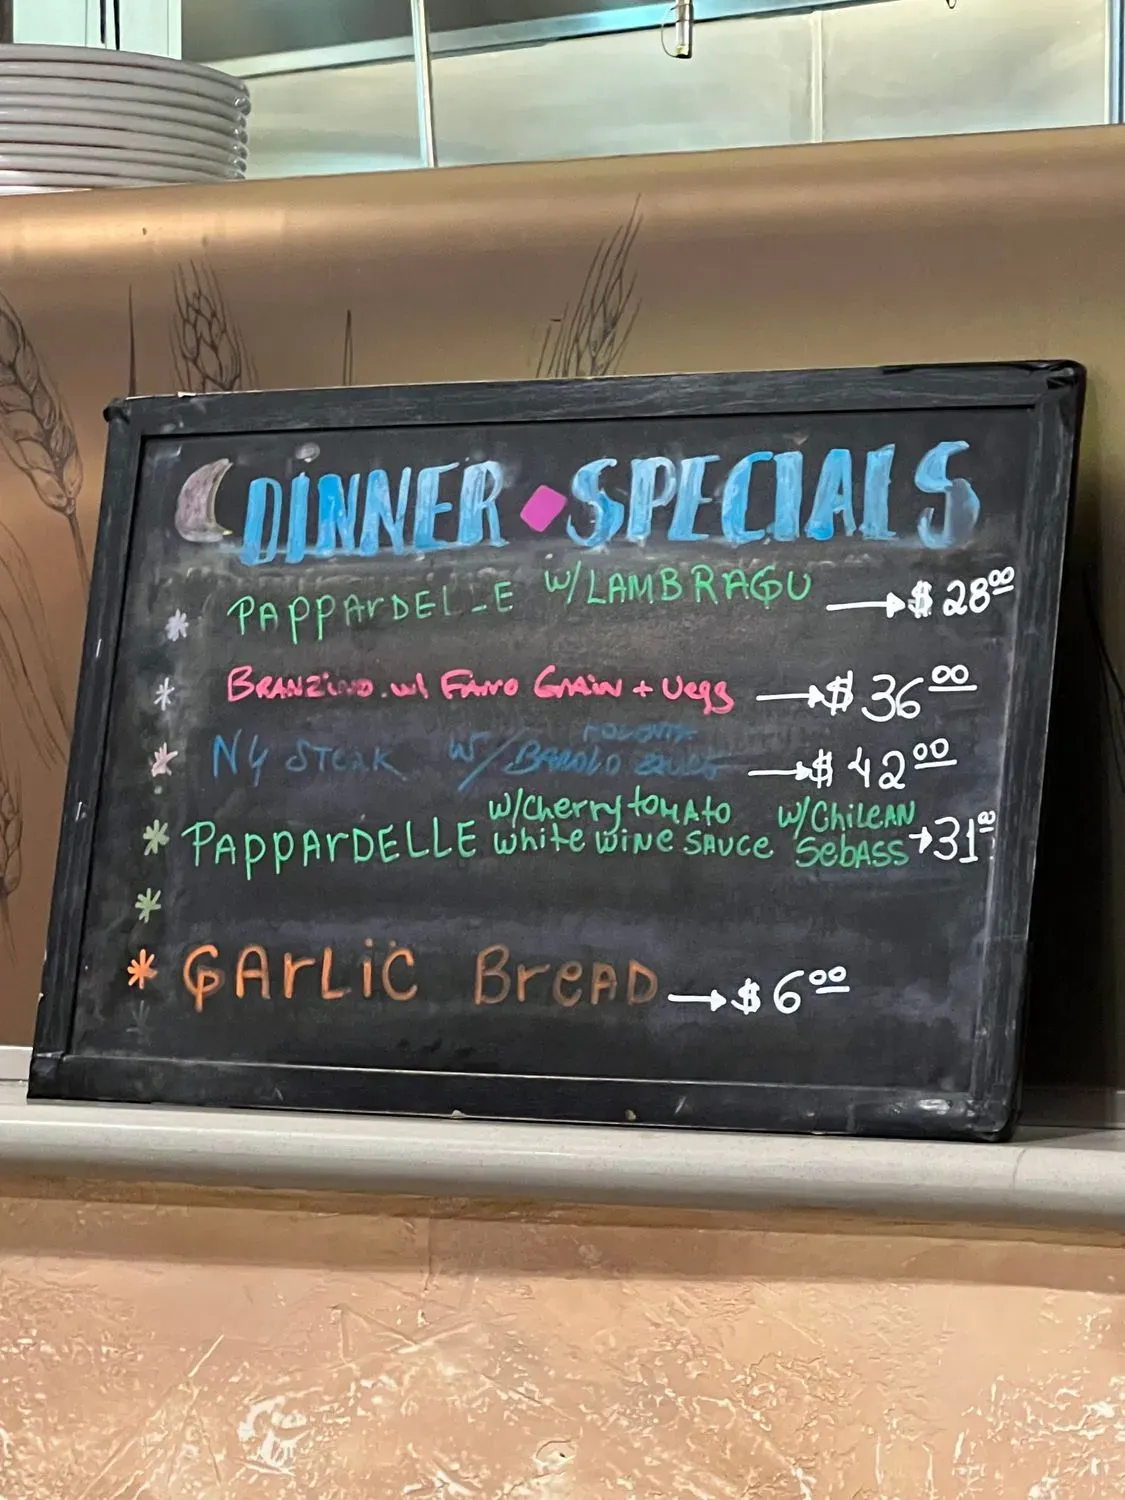 DINNER SPECIALS
PAPPArDELLE w/LAMB RAGU → $28.00
BRANZINO w/ Farro Grain + Vegs → $36.00
NY STEAK w/BAROLO → $42.00
PAppArDELLE w/Cherry tomato white wine sauce w/Chilean Sebass → 31.00
GArLiC BreAD → $6.00